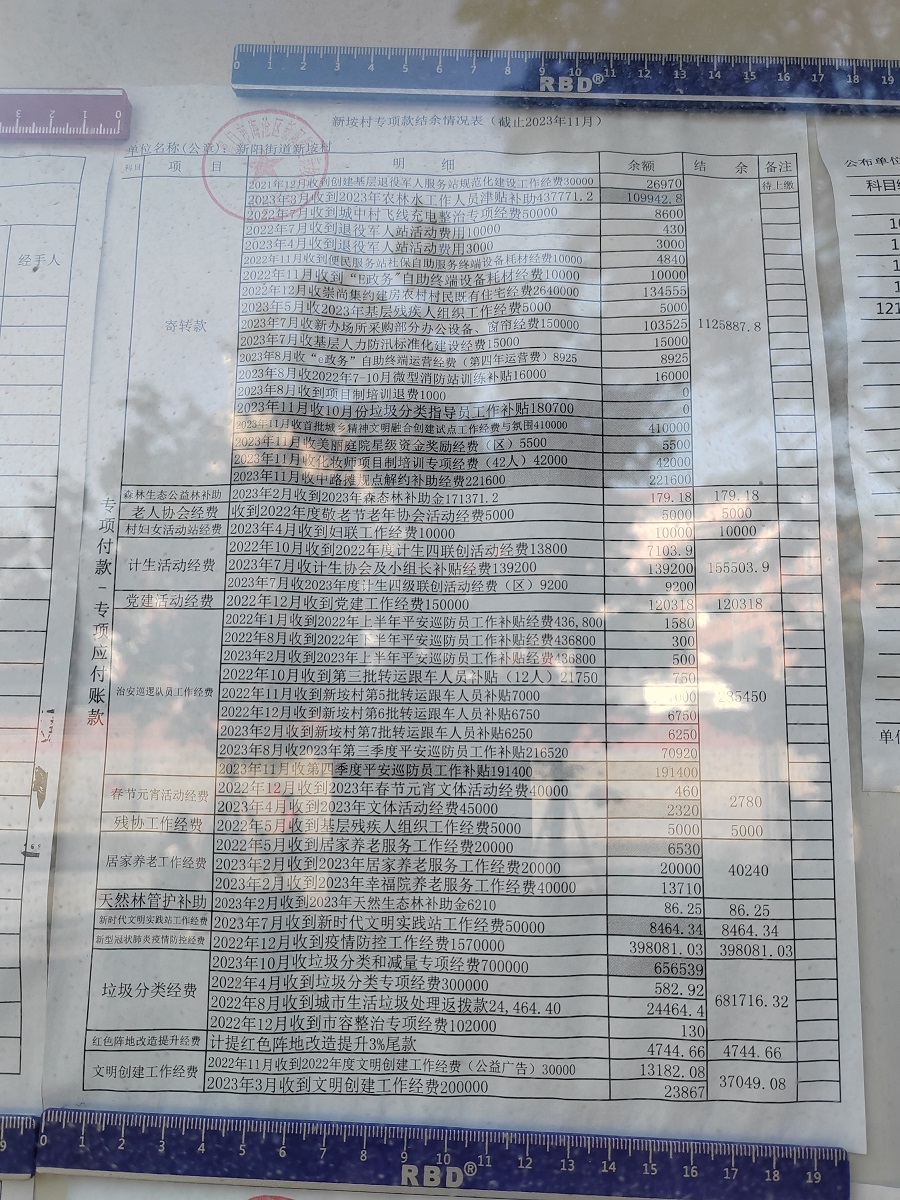 0 1 2 3 4 5 6 7 8 9 10 11 12 13 14 15 16 17 18 19
RBD®
2 1 0
新垵村专项款结余情况表（截止2023年11月）
单位名称(公章)：新阳街道新垵村
科目 项 目 明 细 余额 结 余 备注
2021年12月收到创建基层退役军人服务站规范化建设工作经费30000 26970 待上缴
2023年3月收到2023年农林水工作人员津贴补助437771.2 109942.8
2022年7月收到城中村飞线充电整治专项经费50000 8600
2022年7月收到退役军人站活动费用10000 430
2023年4月收到退役军人站活动费用3000 3000
2022年11月收到便民服务站社保自助服务终端设备耗材经费10000 4840
2022年11月收到“E政务”自助终端设备耗材经费10000 10000
2022年12月收崇尚集约建房农村村民既有住宅经费2640000 134555
2023年5月收2023年基层残疾人组织工作经费5000 5000
寄转款 2023年7月收新办场所采购部分办公设备、窗帘经费150000 103525 1125887.8
2023年7月收基层人力防汛标准化建设经费15000 15000
2023年8月收“e政务”自助终端运营经费（第四年运营费）8925 8925
2023年8月收2022年7-10月微型消防站训练补贴16000 16000
2023年8月收到项目制培训退费1000 0
2023年11月收10月份垃圾分类指导员工作补贴180700 0
2023年11月收首批城乡精神文明融合创建试点工作经费与氛围410000 410000
2023年11月收美丽庭院星级资金奖励经费（区）5500 5500
2023年11月收化妆师项目制培训专项经费（42人）42000 42000
2023年11月收中路滩观点解约补助经费221600 221600
专项付款-专项应付账款
森林生态公益林补助 2023年2月收到2023年森态林补助金171371.2 179.18 179.18
老人协会经费 收到2022年度敬老节老年协会活动经费5000 5000 5000
村妇女活动站经费 2023年4月收到妇联工作经费10000 10000 10000
2022年10月收到2022年度计生四联创活动经费13800 7103.9
计生活动经费 2023年7月收计生协会及小组长补贴经费139200 139200 155503.9
2023年7月收2023年度计生四级联创活动经费（区）9200 9200
党建活动经费 2022年12月收到党建工作经费150000 120318 120318
2022年1月收到2022年上半年平安巡防员工作补贴经费436,800 1580
2022年8月收到2022年下半年平安巡防员工作补贴经费436800 300
2023年2月收到2023年上半年平安巡防员工作补贴经费436800 500
2022年10月收到第三批转运跟车人员补贴（12人）21750 750
治安巡逻队员工作经费 2022年11月收到新垵村第5批转运跟车人员补贴7000
2022年12月收到新垵村第6批转运跟车人员补贴6750 6750
2023年2月收到新垵村第7批转运跟车人员补贴6250 6250
2023年8月收2023年第三季度平安巡防员工作补贴216520 70920
2023年11月收第四季度平安巡防员工作补贴191400 191400
春节元宵活动经费 2022年12月收到2023年春节元宵文体活动经费40000 460 2780
2023年4月收到2023年文体活动经费45000 2320
残协工作经费 2022年5月收到基层残疾人组织工作经费5000 5000 5000
2022年5月收到居家养老服务工作经费20000 6530
居家养老工作经费 2023年2月收到2023年居家养老服务工作经费20000 20000 40240
2023年2月收到2023年幸福院养老服务工作经费40000 13710
天然林管护补助 2023年2月收到2023年天然生态林补助金6210 86.25 86.25
新时代文明实践站工作经费 2023年7月收到新时代文明实践站工作经费50000 8464.34 8464.34
新型冠状肺炎疫情防控经费 2022年12月收到疫情防控工作经费1570000 398081.03 398081.03
2023年10月收垃圾分类和减量专项经费700000 656539
垃圾分类经费 2022年4月收到垃圾分类专项经费300000 582.92 681716.32
2022年8月收到城市生活垃圾处理返拨款24,464.40 24464.4
2022年12月收到市容整治专项经费102000 130
红色阵地改造提升经费 计提红色阵地改造提升3%尾款 4744.66 4744.66
文明创建工作经费 2022年11月收到2022年度文明创建工作经费（公益广告）30000 13182.08 37049.08
2023年3月收到文明创建工作经费200000 23867
经手人
公布单位
科目
121
单位
0 1 2 3 4 5 6 7 8 9 10 11 12 13 14 15 16 17 18 19
RBD®